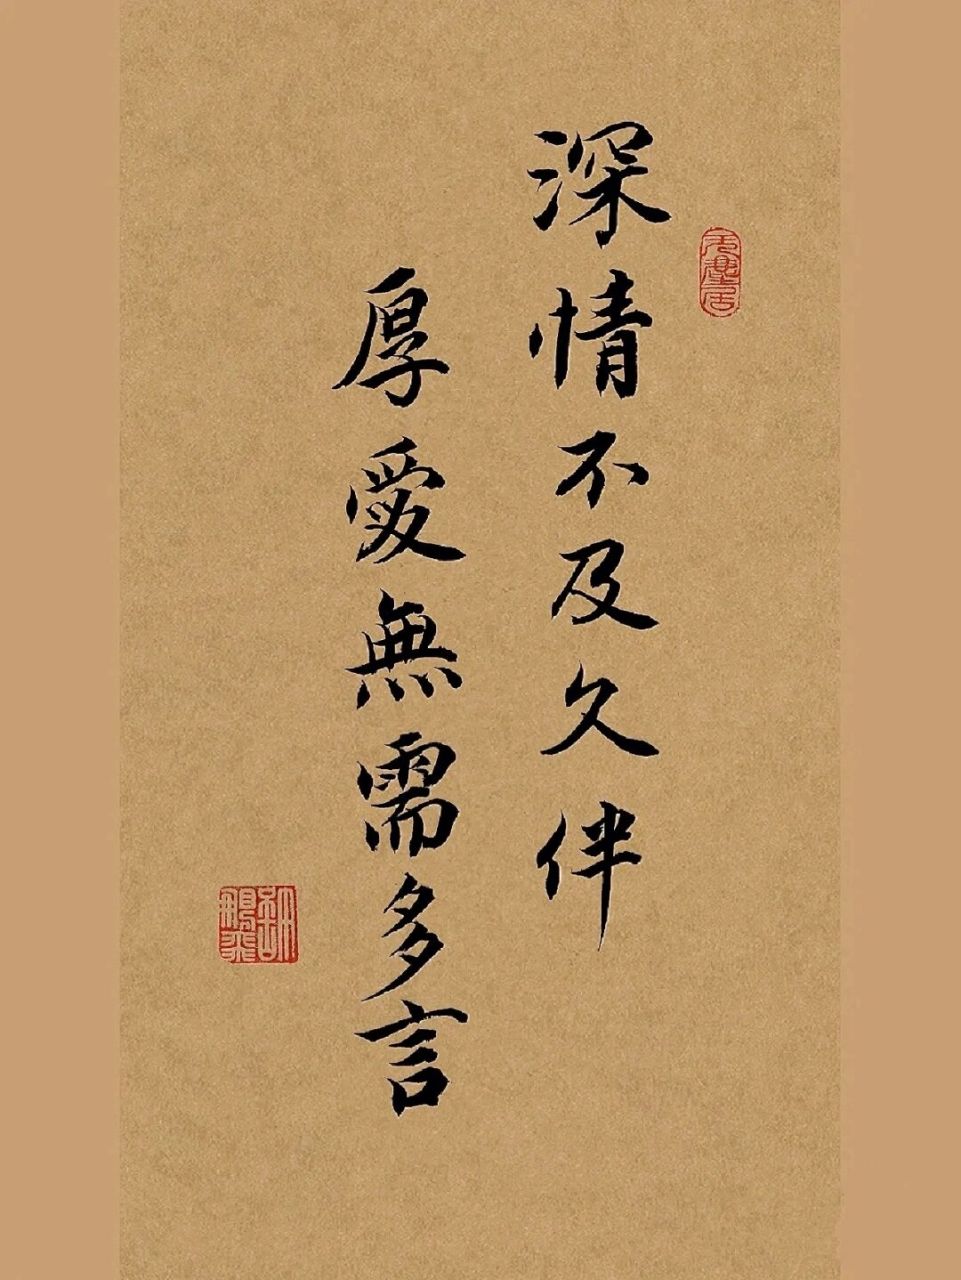 深情不及久伴
厚愛無需多言